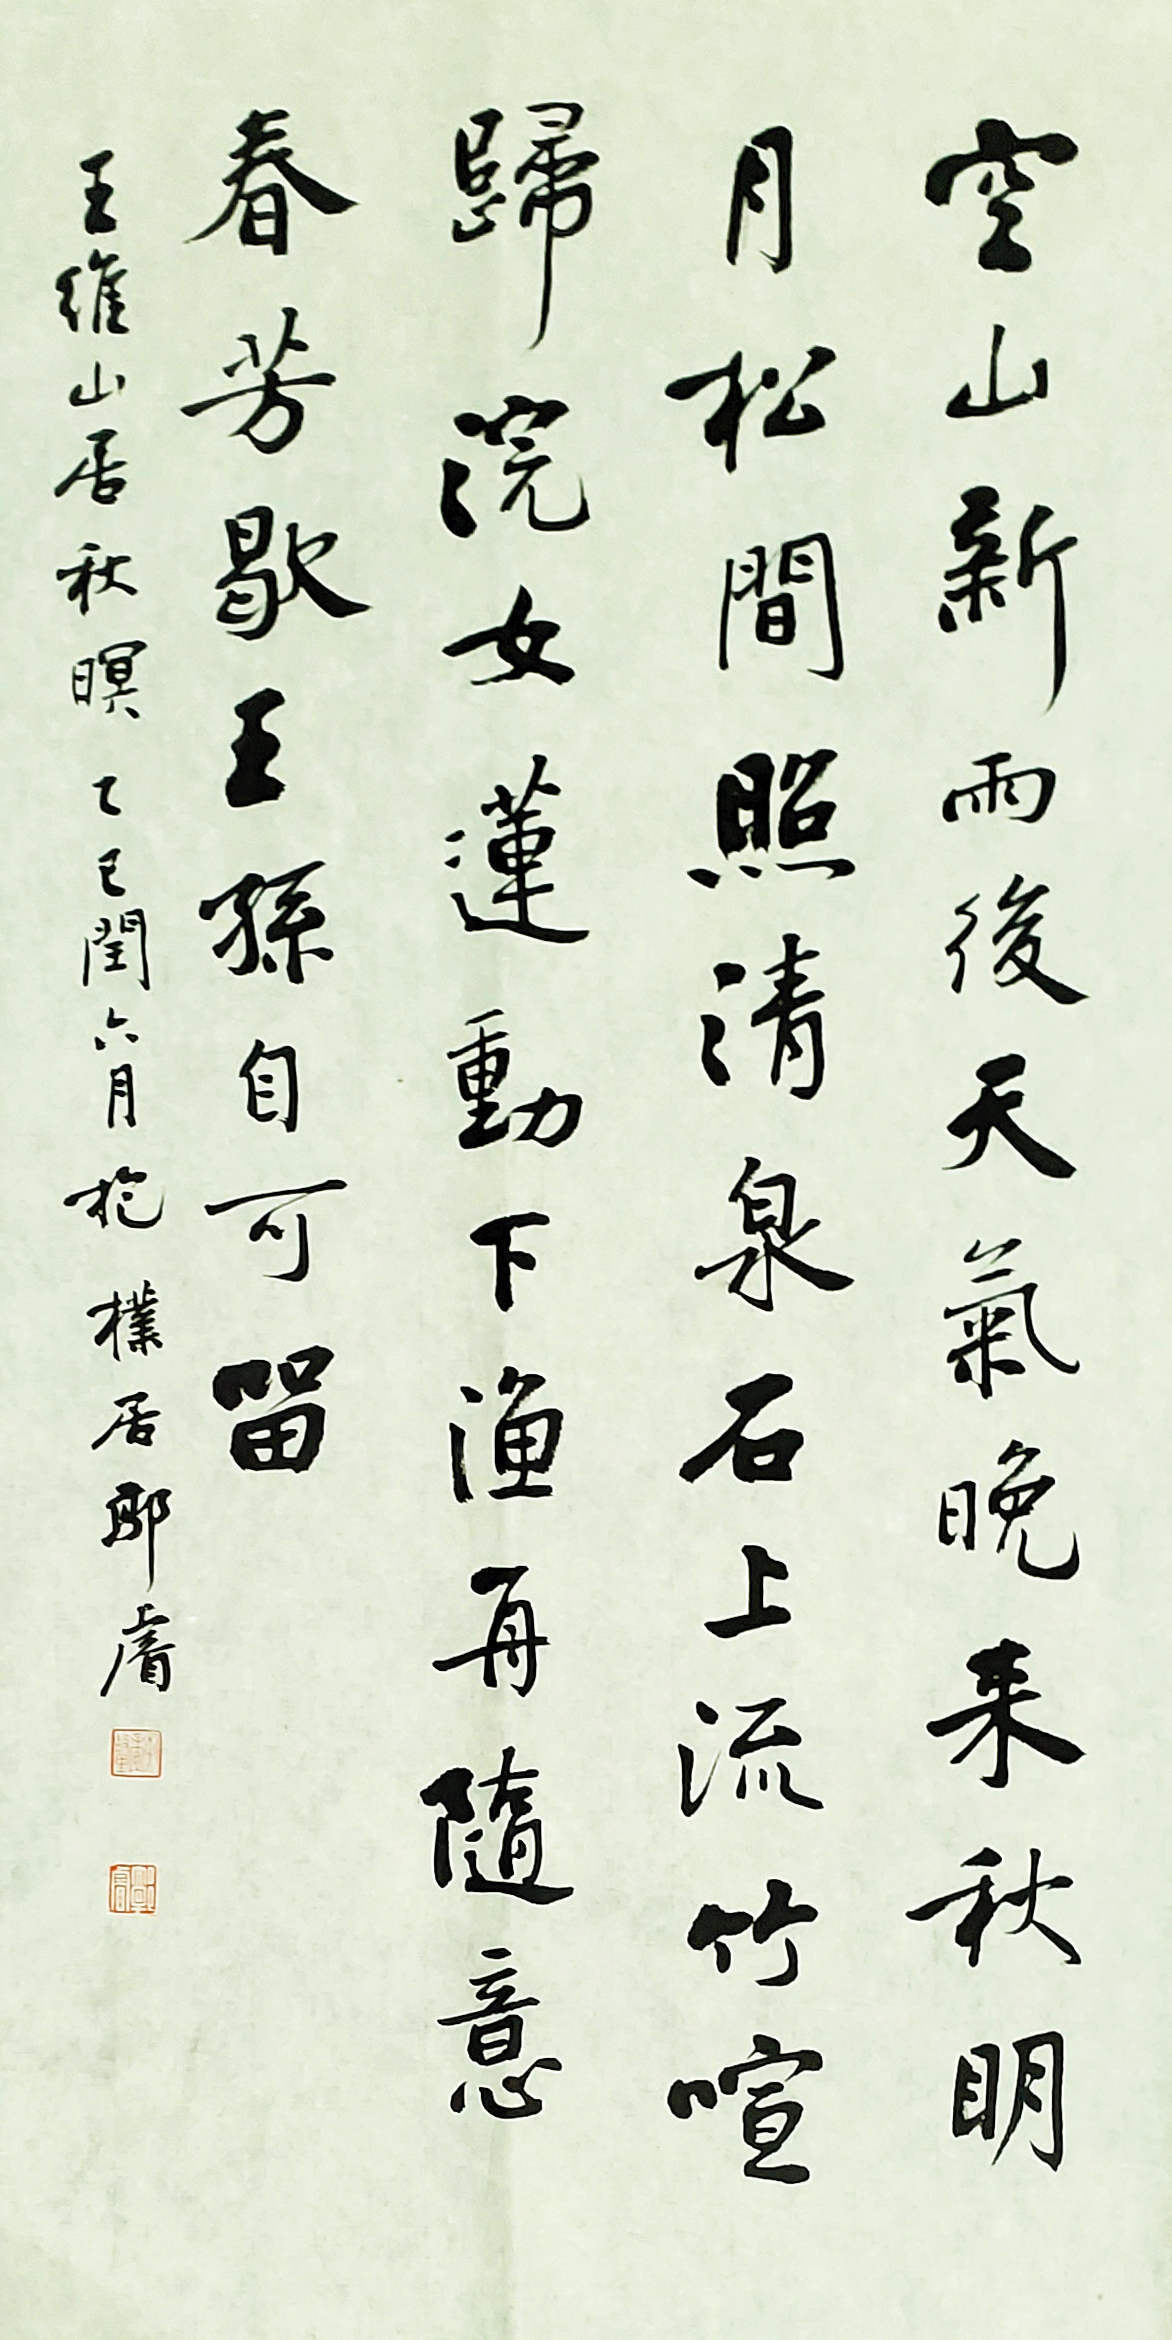 空山新雨後天氣晚来秋明
月松間照清泉石上流竹喧
歸浣女蓮動下渔舟隨意
春芳歇王孫自可留
王維山居秋暝乙巳閏六月於樸居